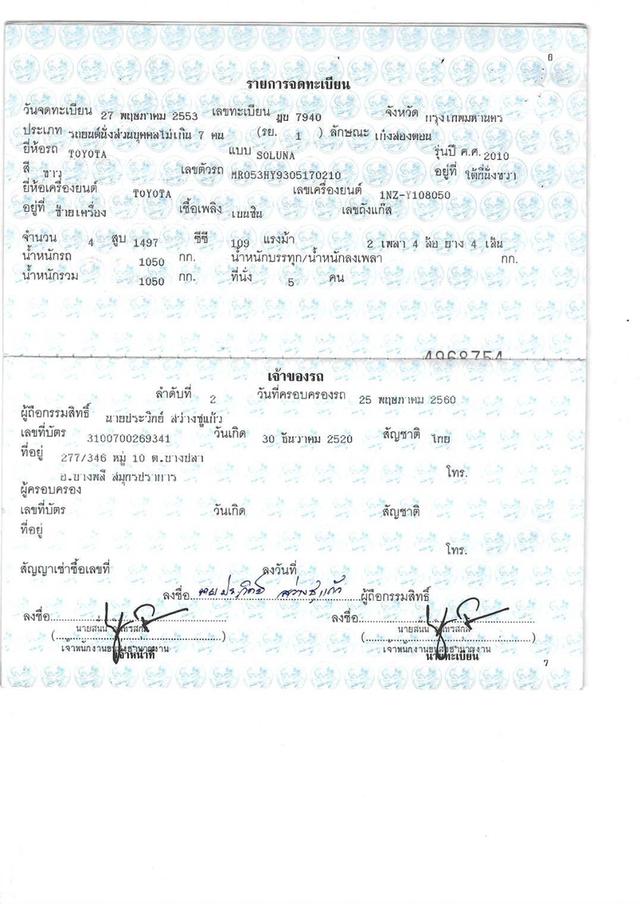 6
รายการจดทะเบียน
วันจดทะเบียน 27 พฤษภาคม 2553 เลขทะเบียน ฎบ 7940 จังหวัด กรุงเทพมหานคร
ประเภท รถยนต์นั่งส่วนบุคคลไม่เกิน 7 คน (รย. 1 ) ลักษณะ เก๋งสองตอน
ยี่ห้อรถ TOYOTA แบบ SOLUNA รุ่นปี ค.ศ. 2010
สี ขาว เลขตัวรถ MR053HY9305170210 อยู่ที่ ใต้ที่นั่งขวา
ยี่ห้อเครื่องยนต์ TOYOTA เลขเครื่องยนต์ 1NZ-Y108050
อยู่ที่ ซ้ายเครื่อง เชื้อเพลิง เบนซิน เลขถังแก๊ส
จำนวน 4 สูบ 1497 ซีซี 109 แรงม้า 2 เพลา 4 ล้อ ยาง 4 เส้น
น้ำหนักรถ 1050 กก. น้ำหนักบรรทุก/น้ำหนักลงเพลา กก.
น้ำหนักรวม 1050 กก. ที่นั่ง 5 คน
4968754
เจ้าของรถ
ลำดับที่ 2 วันที่ครอบครองรถ 25 พฤษภาคม 2560
ผู้ถือกรรมสิทธิ์ นายประวิทย์ สว่างชูแก้ว
เลขที่บัตร 3100700269341 วันเกิด 30 ธันวาคม 2520 สัญชาติ ไทย
ที่อยู่ 277/346 หมู่ 10 ต.บางปลา
อ.บางพลี สมุทรปราการ โทร.
ผู้ครอบครอง
เลขที่บัตร วันเกิด สัญชาติ
ที่อยู่
โทร.
สัญญาเช่าซื้อเลขที่ ลงวันที่
ลงชื่อ นายประวิทย์ สว่างชูแก้ว ผู้ถือกรรมสิทธิ์
ลงชื่อ ลงชื่อ
เจ้าหน้าที่ นายทะเบียน
7